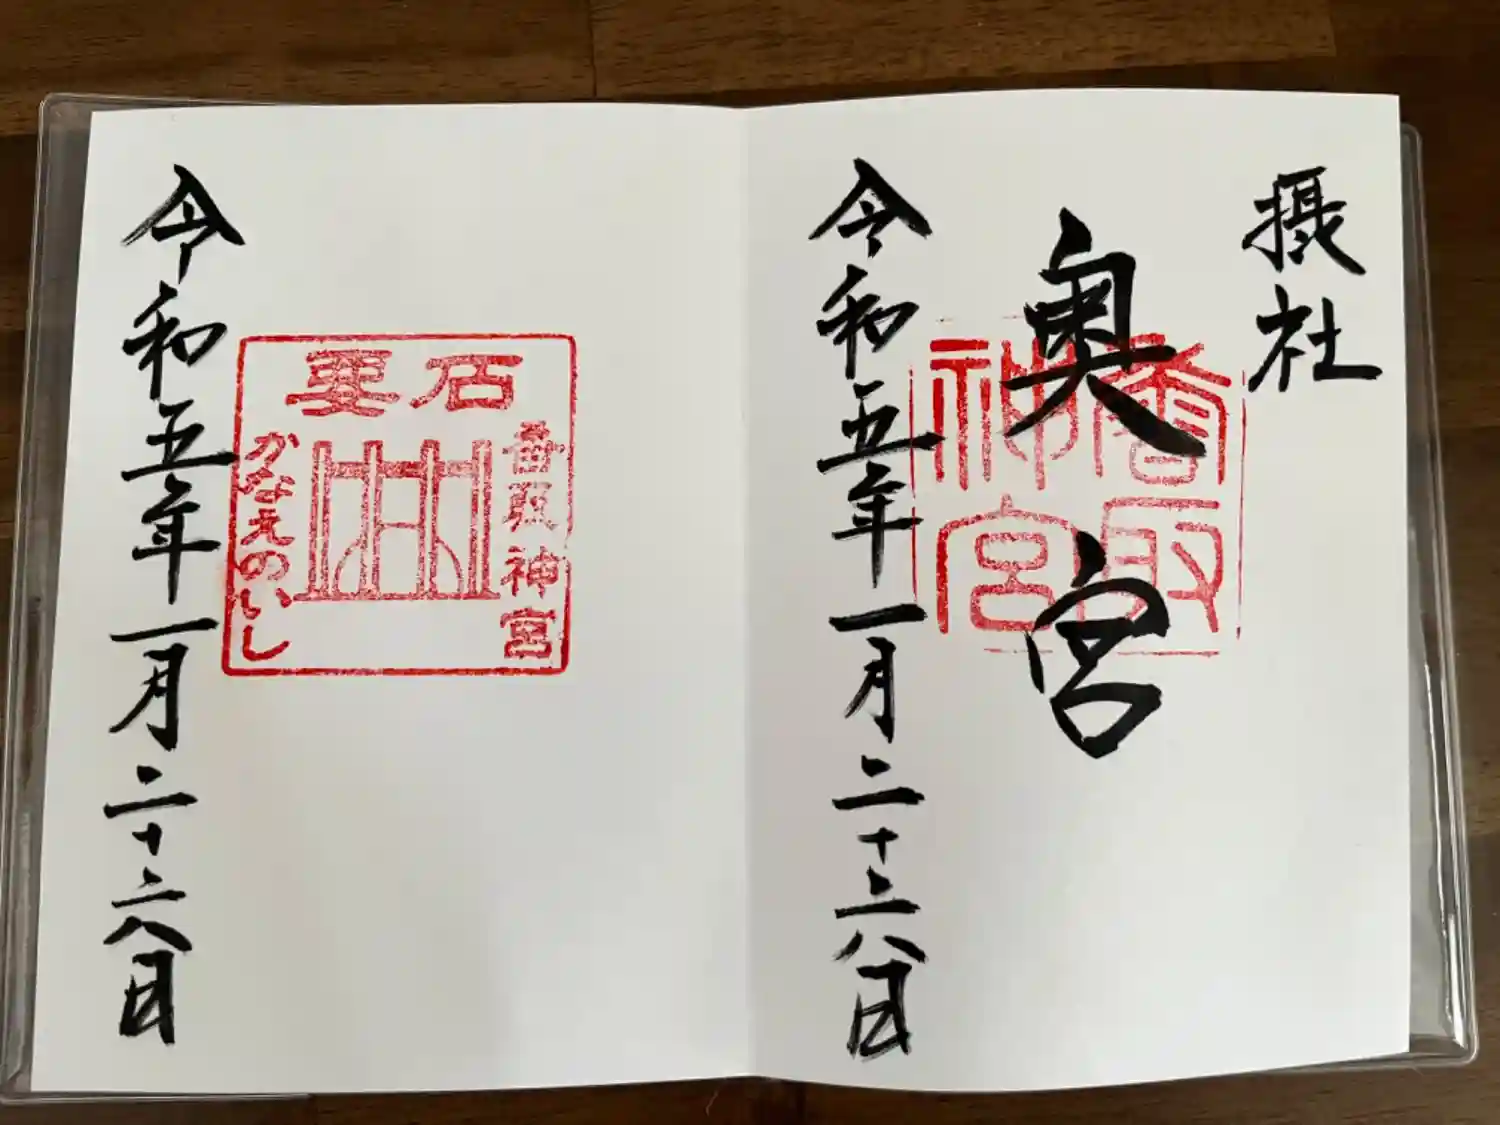 摂社
奥宮
香取神宮
令和五年一月二十六日
石要
香取神宮
かなめのいし
令和五年一月二十六日